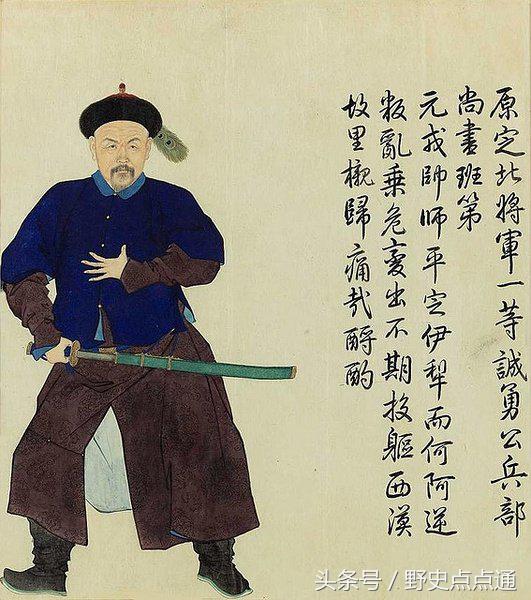 原定北將軍一等誠勇公兵部
尚書班第
元戎帥師平定伊犁而何阿逆
叛亂乗危變出不期投軀西漠
故里櫬歸痛哉酹酌
头条号／野史点点通